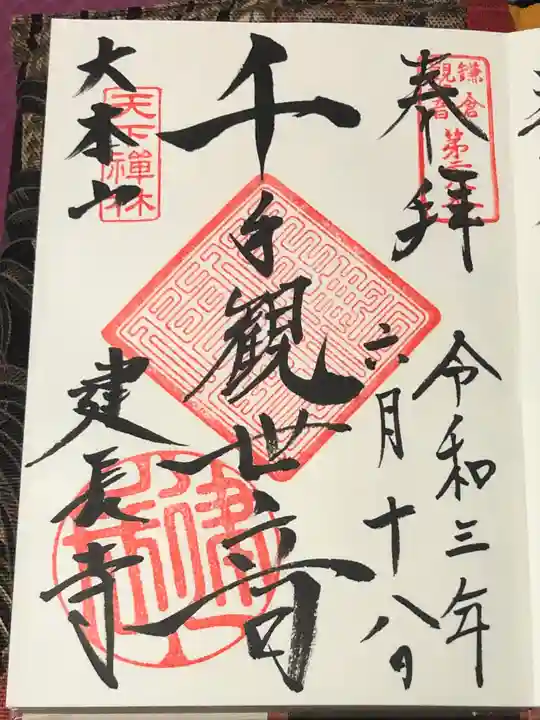 奉拝
鎌倉
観音
第
令和三年
六月十八日
千手観世音
大本山
建長寺
天下禅林